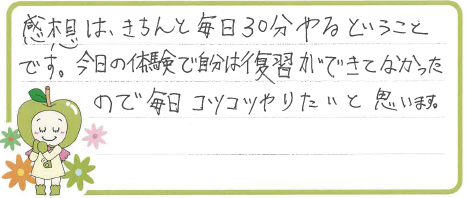 感想は、きちんと毎日30分やるということ
です。今日の体験で自分は復習ができてなかった
ので毎日コツコツやりたいと思います。